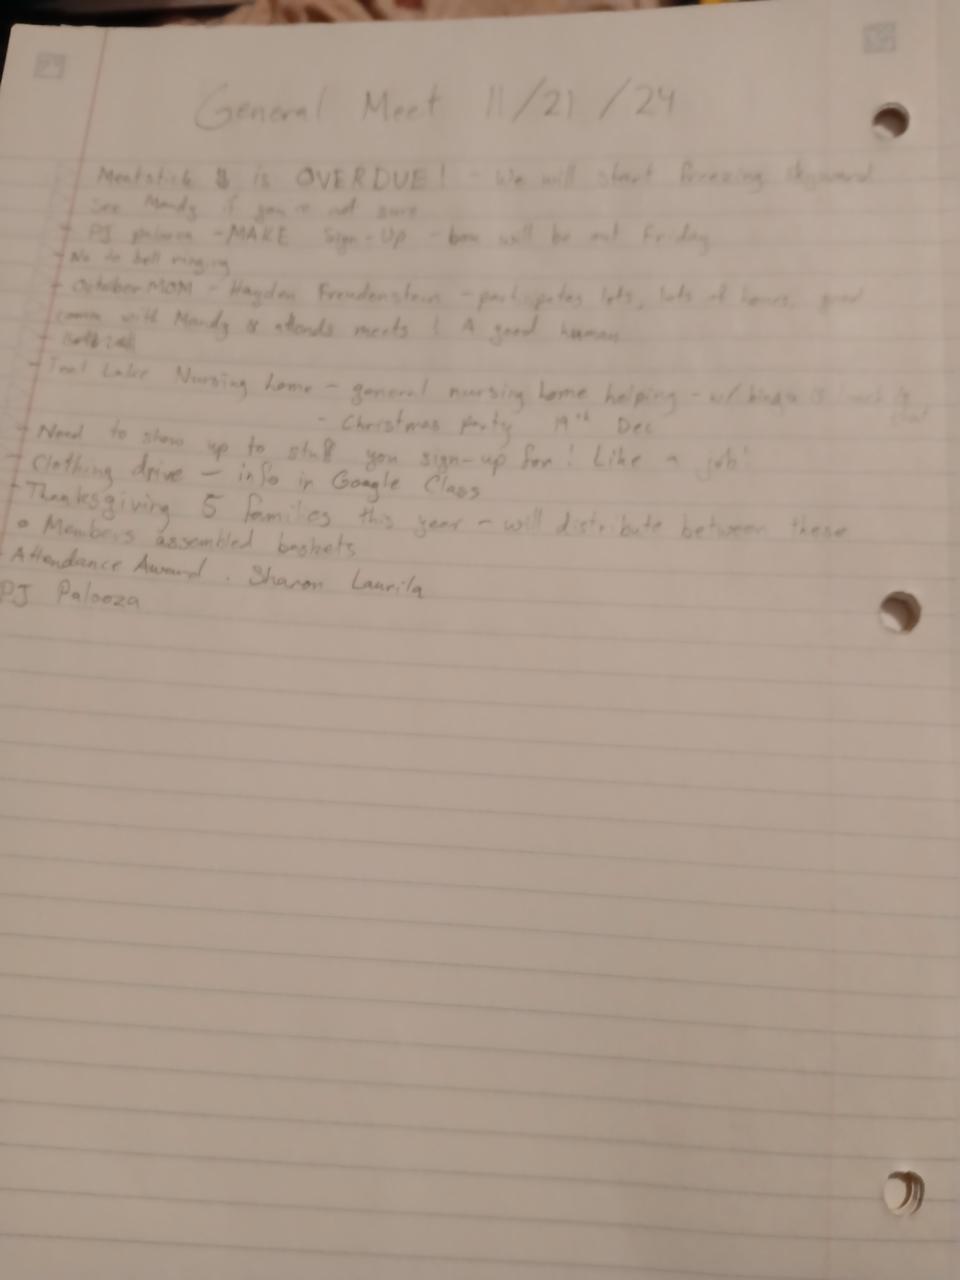 General Meet 11/21/24
Meatstick $ is OVERDUE! - We will start freezing skyward
see Mandy if you're not sure
- PJ palooza - MAKE Sign-Up - box will be out Friday
- No to bell ringing
- October MOM - Hayden Freudenstein - participates lots, lots of hours, good
comm with Mandy & attends meets! A good human
-
- Teal Lake Nursing home - general nursing home helping - w/ bingo
- Christmas party 19th Dec
- Need to show up to stuff you sign-up for! Like a job!
- Clothing drive - info in Google Class
- Thanksgiving 5 families this year - will distribute between these
• Members assembled baskets
Attendance Award. Sharon Laurila
PJ Palooza